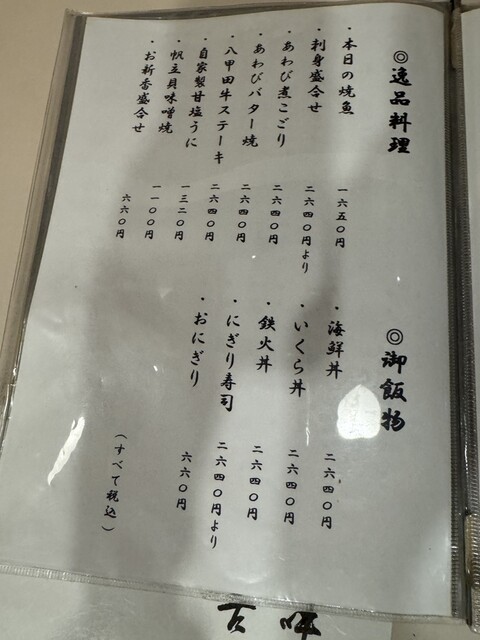 ◎逸品料理
・本日の焼魚 一六五〇円
・刺身盛合せ 二六四〇円より
・あわび煮こごり 二六四〇円
・あわびバター焼 二六四〇円
・八甲田牛ステーキ 二六四〇円
・自家製甘塩うに 一三二〇円
・帆立貝味噌焼 一一〇〇円
・お新香盛合せ 六六〇円
◎御飯物
・海鮮丼 二六四〇円
・いくら丼 二六四〇円
・鉄火丼 二六四〇円
・にぎり寿司 二六四〇円より
・おにぎり 六六〇円
（すべて税込）